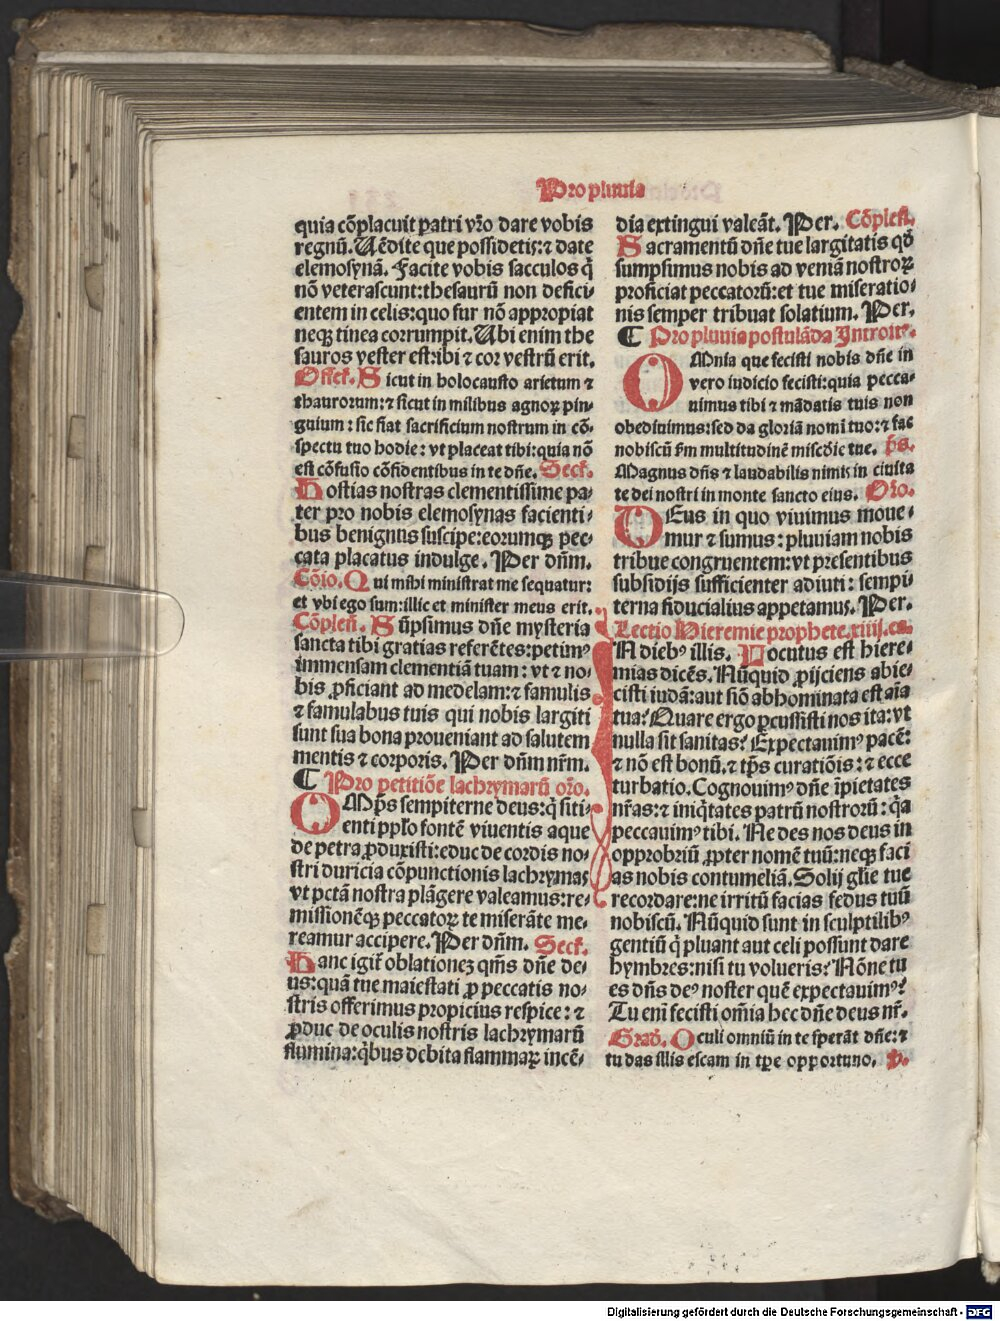 Pro pluuia
quia cōplacuit patri vr̄o dare vobis
regnū. Uēdite que possidetis: ⁊ date
elemosynā. Facite vobis sacculos q̄
nō veterascunt: thesaurū non defici-
entem in celis: quo fur nō appropiat
neqꝫ tinea corrumpit. Ubi enim the
saurus vester est ibi ⁊ cor vestrū erit.
Offert. Sicut in holocausto arietum ⁊
thaurorum: ⁊ sicut in milibus agnoꝝ pin-
guium: sic fiat sacrificium nostrum in cō-
spectu tuo hodie: vt placeat tibi: quia nō
est cōfusio cōfidentibus in te dn̄e. Secr̄.
Hostias nostras clementissime pa-
ter pro nobis elemosynas facienti-
bus benignus suscipe: eorumqꝫ pec-
cata placatus indulge. Per dn̄m.
Cōio. Qui mihi ministrat me sequatur:
et vbi ego sum: illic et minister meus erit.
Cōplen̄. Sūpsimus dn̄e mysteria
sancta tibi gratias referētes: petimꝰ
immensam clementiā tuam: vt ⁊ no-
bis ꝓficiant ad medelam: ⁊ famulis
⁊ famulabus tuis qui nobis largiti
sunt sua bona proueniant ad salutem
mentis ⁊ corporis. Per dn̄m nr̄m.
¶ Pro petitiōe lachrymarū oro.
OMp̄s sempiterne deus: q̄ siti-
enti pplo fontē viuentis aque
de petra ꝓduxisti: educ de cordis no-
stri duricia cōpunctionis lachrymas
vt pctā nostra plāgere valeamus: re-
missionēqꝫ peccatoꝝ te miserāte me-
reamur accipere. Per dn̄m. Secr̄.
Hanc igit̄ oblationeꝫ qm̄s dn̄e de-
us: quā tue maiestati ꝓ peccatis no-
stris offerimus propicius respice: ⁊
ꝓduc de oculis nostris lachrymarū
flumina: q̄bus debita flammaꝝ incē-
dia extingui valeāt. Per. Cōplen̄.
Sacramentū dn̄e tue largitatis qd̄
sumpsimus nobis ad veniā nostroꝝ
proficiat peccatorū: et tue miseratio-
nis semper tribuat solatium. Per.
¶ Pro pluuia postulāda Introitꝰ.
OMnia que fecisti nobis dn̄e in
vero iudicio fecisti: quia pecca-
uimus tibi ⁊ mādatis tuis non
obediuimus: sed da gloriā nomī tuo: ⁊ fac
nobiscū scd̄m multitudinē mīscd̄ie tue. p̄s.
Magnus dn̄s ⁊ laudabilis nimis in ciuita
te dei nostri in monte sancto eius. Oro.
DEus in quo viuimus moue-
mur ⁊ sumus: pluuiam nobis
tribue congruentem: vt presentibus
subsidijs sufficienter adiuti: sempi-
terna fiducialius appetamus. Per.
Lectio Hieremie prophete. xiiij. ca.
IN diebꝰ illis. Locutus est hiere-
mias dicēs. Nūquid ꝓijciens abie-
cisti iudā: aut siō abhominata est aīa
tua? Quare ergo ꝑcussisti nos ita: vt
nulla sit sanitas? Expectauimꝰ pacē:
⁊ nō est bonū. ⁊ tp̄s curatiōis: ⁊ ecce
turbatio. Cognouimꝰ dn̄e īpietates
nr̄as: ⁊ iniq̄tates patrū nostrorū: q̄a
peccauimꝰ tibi. Ne des nos deus in
opprobriū ꝓpter nomē tuū: neqꝫ faci
as nobis contumeliā. Solij gl̄ie tue
recordare: ne irritū facias fedus tuū
nobiscū. Nūquid sunt in sculptilibꝰ
gentiū q̄ pluant aut celi possunt dare
hymbres: nisi tu volueris? Nōne tu
es dn̄s deꝰ noster quē expectauimꝰ?
Tu eni fecisti om̄ia hec dn̄e deus nr̄.
Grad. Oculi omniū in te sperāt dn̄e: ⁊
tu das illis escam in tꝑe opportuno. v.
Digitalisierung gefördert durch die Deutsche Forschungsgemeinschaft - DFG